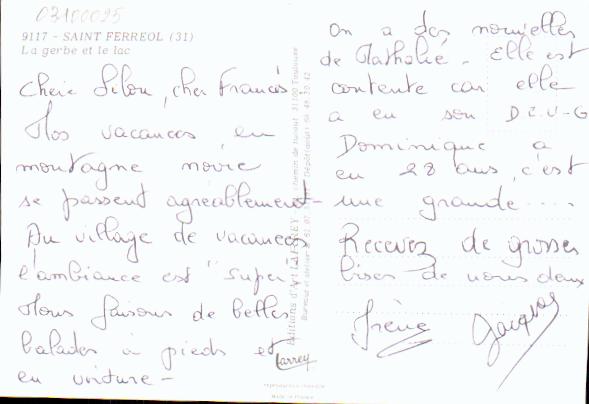 03100095
9117 - SAINT FERREOL (31)
La gerbe et le lac
Chère Lilou, cher Francis
Nos vacances en
montagne noire
se passent agréablement -
Au village de vacances
l'ambiance est "super"
Nous faisons de belles
balades à pieds et
en voiture -
On a des nouvelles
de Nathalie - Elle est
contente car elle
a eu son D.E.U.G
Dominique a
eu 28 ans, c'est
une grande ....
Recevez de grosses
bises de nous deux
Irène Jacques
Editions d'Art LARREY
larrey